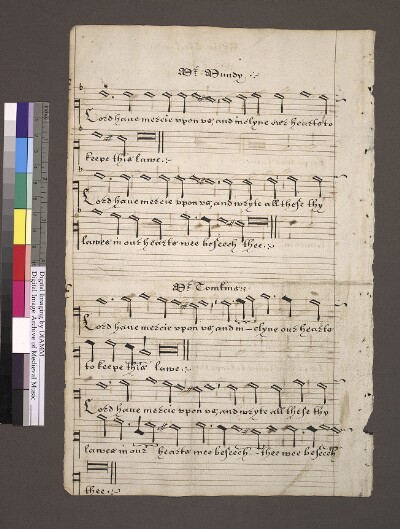 Mr. Mundy :~
Lord haue mercie vpon vs, and inclyne our hearts to
keepe this lawe :~
Lord haue mercie vpon vs, and wryte all these thy
lawes in our hearts wee beseech thee :~
Mr. Tomkins
Lord haue mercie vpon vs, and in-clyne our hearts
to keepe this lawe :~
Lord haue mercie vpon vs, and wryte all these thy
lawes in our hearts wee beseech - thee wee beseech
thee :~
Digital Imaging by DIAMM
Digital Image Archive of Medieval Music